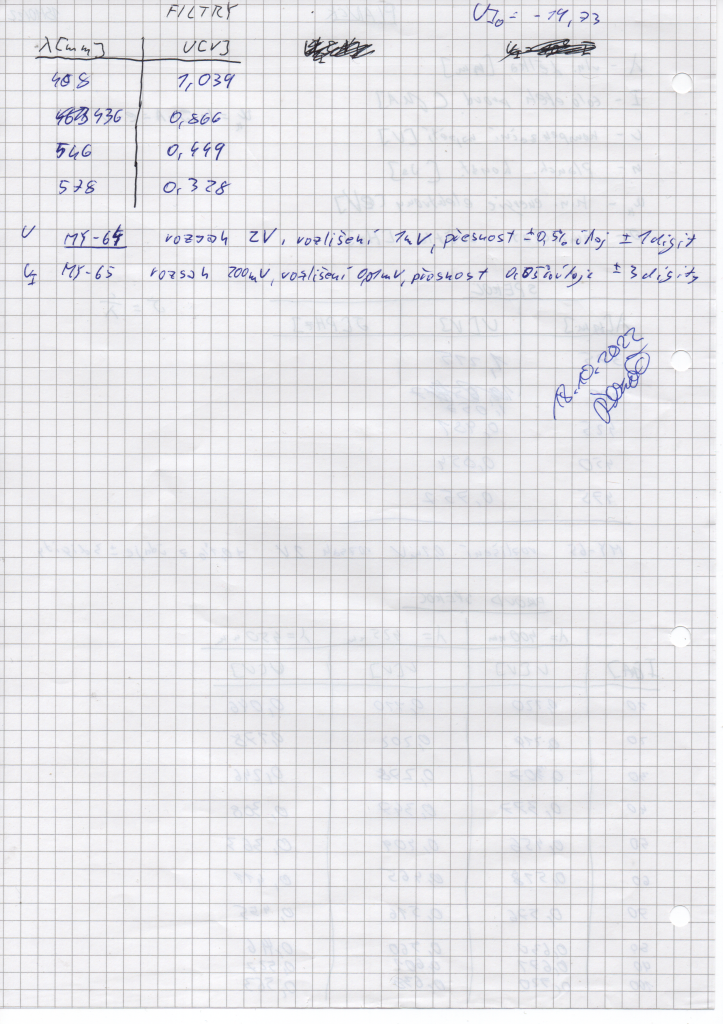 FILTRY U_I0 = -14,73
λ[nm] U[V]
408 1,039
436 0,866
546 0,449
578 0,328
U MY-64 rozsah 2V, rozlišení 1mV, přesnost ±0,5% údaj ± 1 digit
U_I MY-65 rozsah 200mV, rozlišení 0,01mV, přesnost 0,05% údaje ± 3 digity
18.10.2022